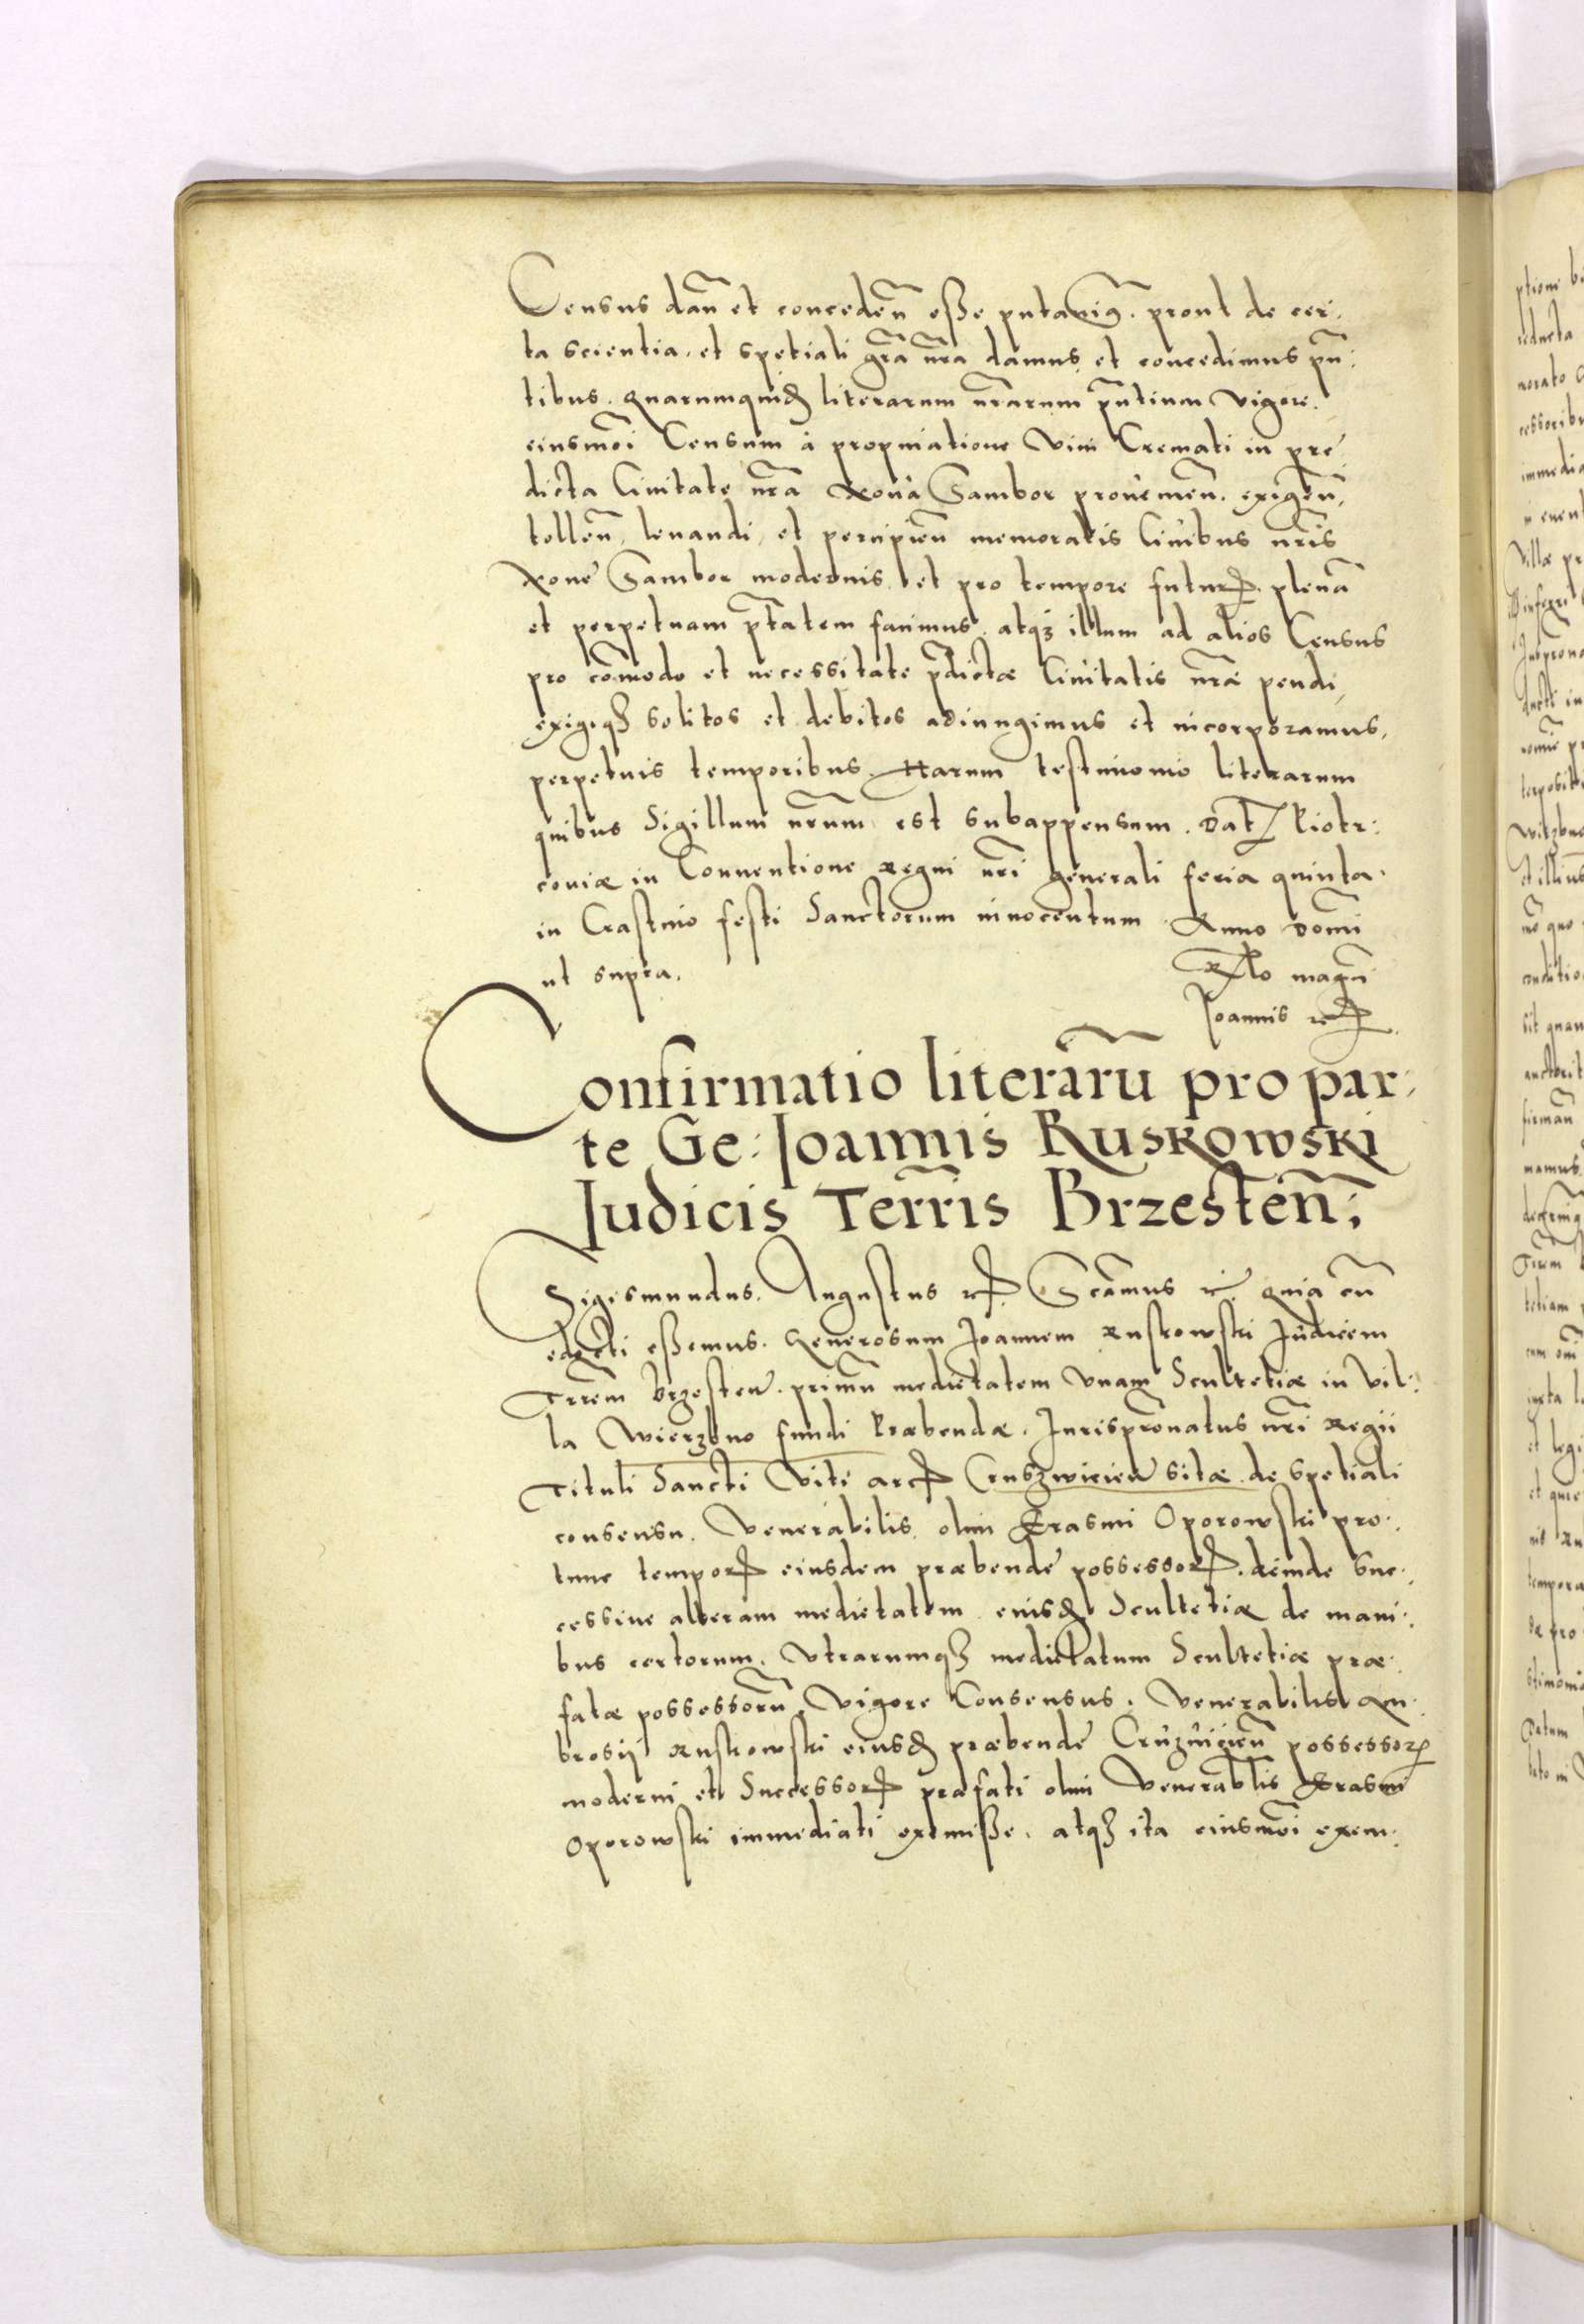 Census dan̄ et conceden̄ esse putavimus. prout de cer-
ta scientia. et spetiali gr̄a nr̄a damus et concedimus pn̄-
tibus. Quarumquidem literarum nr̄arum pn̄tium vigore.
eiusmōi Censum à propinatione vini Cremati in pre-
dicta Civitate nr̄a Nova Sambor provemen̄. exigen̄,
tollen̄, levandi, et percipien̄ memoratis Civibus nr̄is
Nove Sambor modernis et pro tempore futur. plenā
et perpetuam ptātem facimus. atq3 illum ad alios Census
pro cōmodo et necessitate p̄dictæ Civitatis nr̄æ pendi,
exigiq3 solitos et debitos adiungimus et incorporamus,
perpetuis temporibus. Harum testimonio literarum
quibus Sigillum nr̄um est subappensum. Dat Piotr-
coviæ in Conventione Regni nr̄i generali feria quinta
in Crastino festi Sanctorum innocentum Anno Domī
ut supra.
Rlo magci
Joannis etc.
Confirmatio literarū pro par-
te Ge: Joannis Ruskowski
Judicis Terrīs Brzesten̄;
Sigismundus. Augustus etc. Scāmus etc. Quia cū
edocti essemus. Generosum Joannem Ruskowski Judicem
Trrēm brzesten. primū medietatem unam Scultetiæ in vil-
la Wierzbno fundi Præbendæ. Jurisprōnatus nr̄i Regii
Tituli Sancti Viti arc Cruszwicien sitæ de spetiali
consensu. Venerabilis olim Erasmi Oporowski pro-
tunc tempor eiusdem præbende possessor. deinde suc-
cessive alteram medietatem eiusd Scultetiæ de mani-
bus certorum. Utrarumq3 medietatum Scultetiæ præ-
fatæ possessorū. Vigore Consensus. Venerabilis Am-
brosij Ruskowski eiusd præbende Cruzvicien̄ possessor
moderni et Successor præfati olim Venerablis Erasmi
Oporowski immediati exemisse. atq3 ita eiusmōi exem-